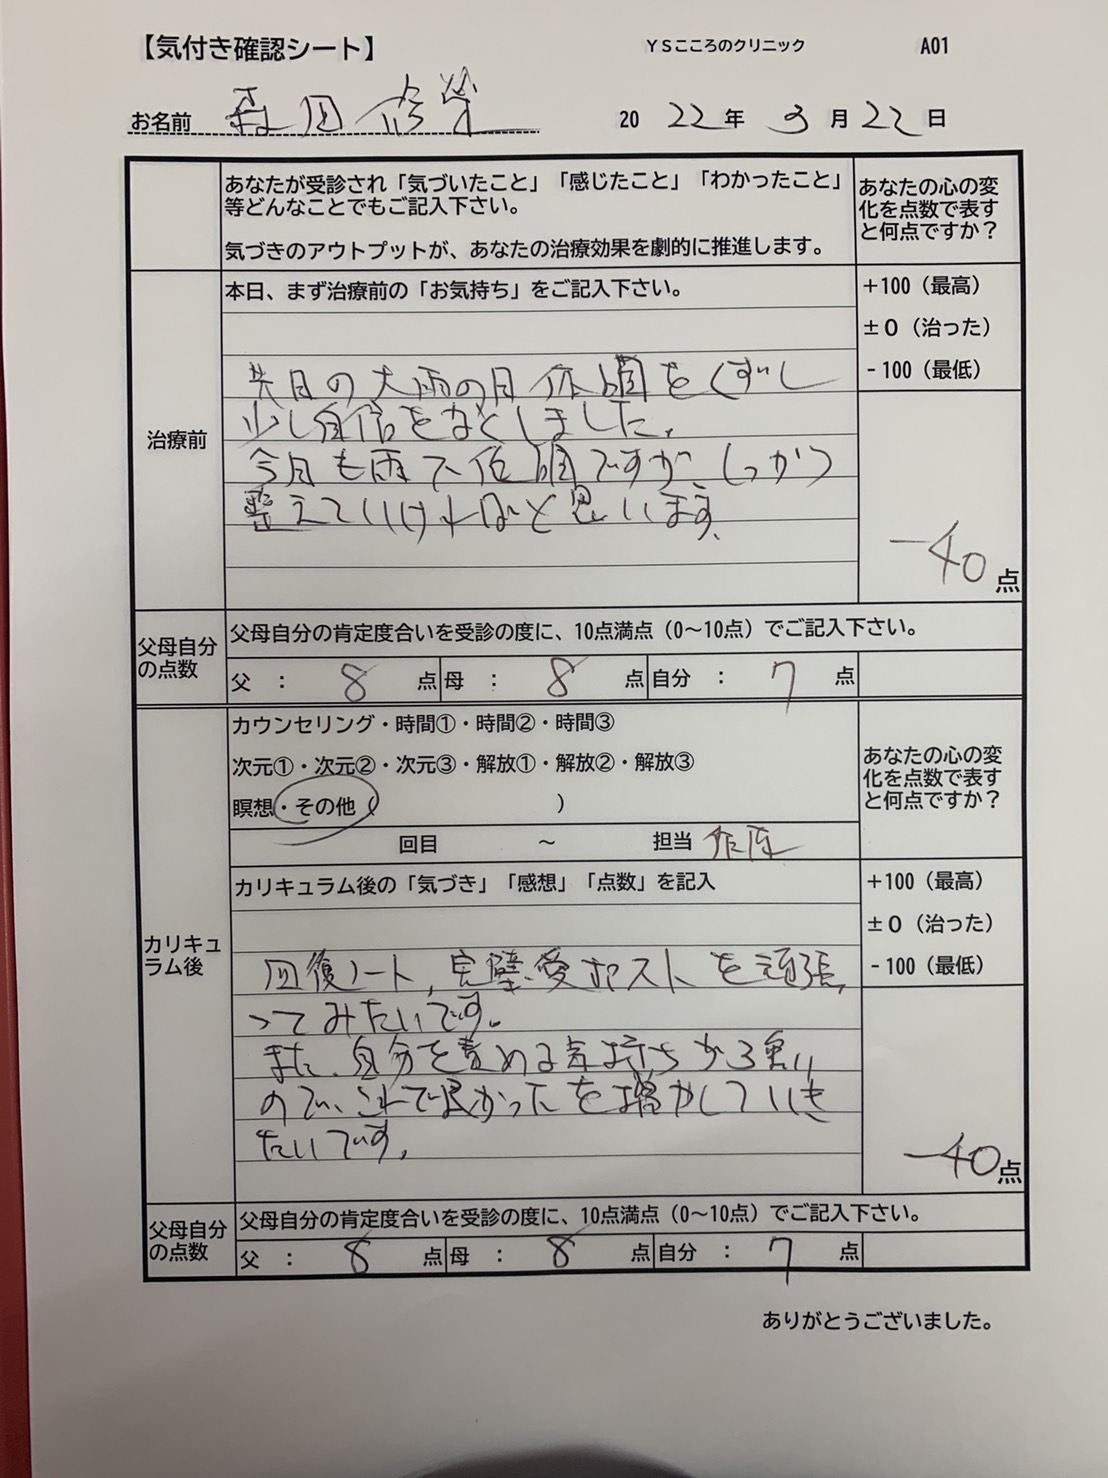 【気付き確認シート】 YSこころのクリニック A01
お名前 森田 修
20 22 年 3 月 22 日
あなたが受診され「気づいたこと」「感じたこと」「わかったこと」
等どんなことでもご記入下さい。
気づきのアウトプットが、あなたの治療効果を劇的に推進します。
あなたの心の変
化を点数で表す
と何点ですか？
治療前
本日、まず治療前の「お気持ち」をご記入下さい。
+100（最高）
±0（治った）
-100（最低）
先日の大雨の日体調をくずし
少し自信をなくしました。
今日も雨で低調ですが、しっかり
整えていければと思います。
-40点
父母自分
の点数
父母自分の肯定度合いを受診の度に、10点満点（0～10点）でご記入下さい。
父 ： 8 点 母 ： 8 点 自分 ： 7 点
カリキュ
ラム後
カウンセリング・時間①・時間②・時間③
次元①・次元②・次元③・解放①・解放②・解放③
瞑想・その他（ ）
回目 ～ 担当
あなたの心の変
化を点数で表す
と何点ですか？
カリキュラム後の「気づき」「感想」「点数」を記入
+100（最高）
±0（治った）
-100（最低）
回復ノート、完璧、愛ポストを頑張
ってみたいです。
また、自分を責める気持ちが強い
ので、これで良かったを増やしていき
たいです。
-40点
父母自分
の点数
父母自分の肯定度合いを受診の度に、10点満点（0～10点）でご記入下さい。
父 ： 8 点 母 ： 8 点 自分 ： 7 点
ありがとうございました。